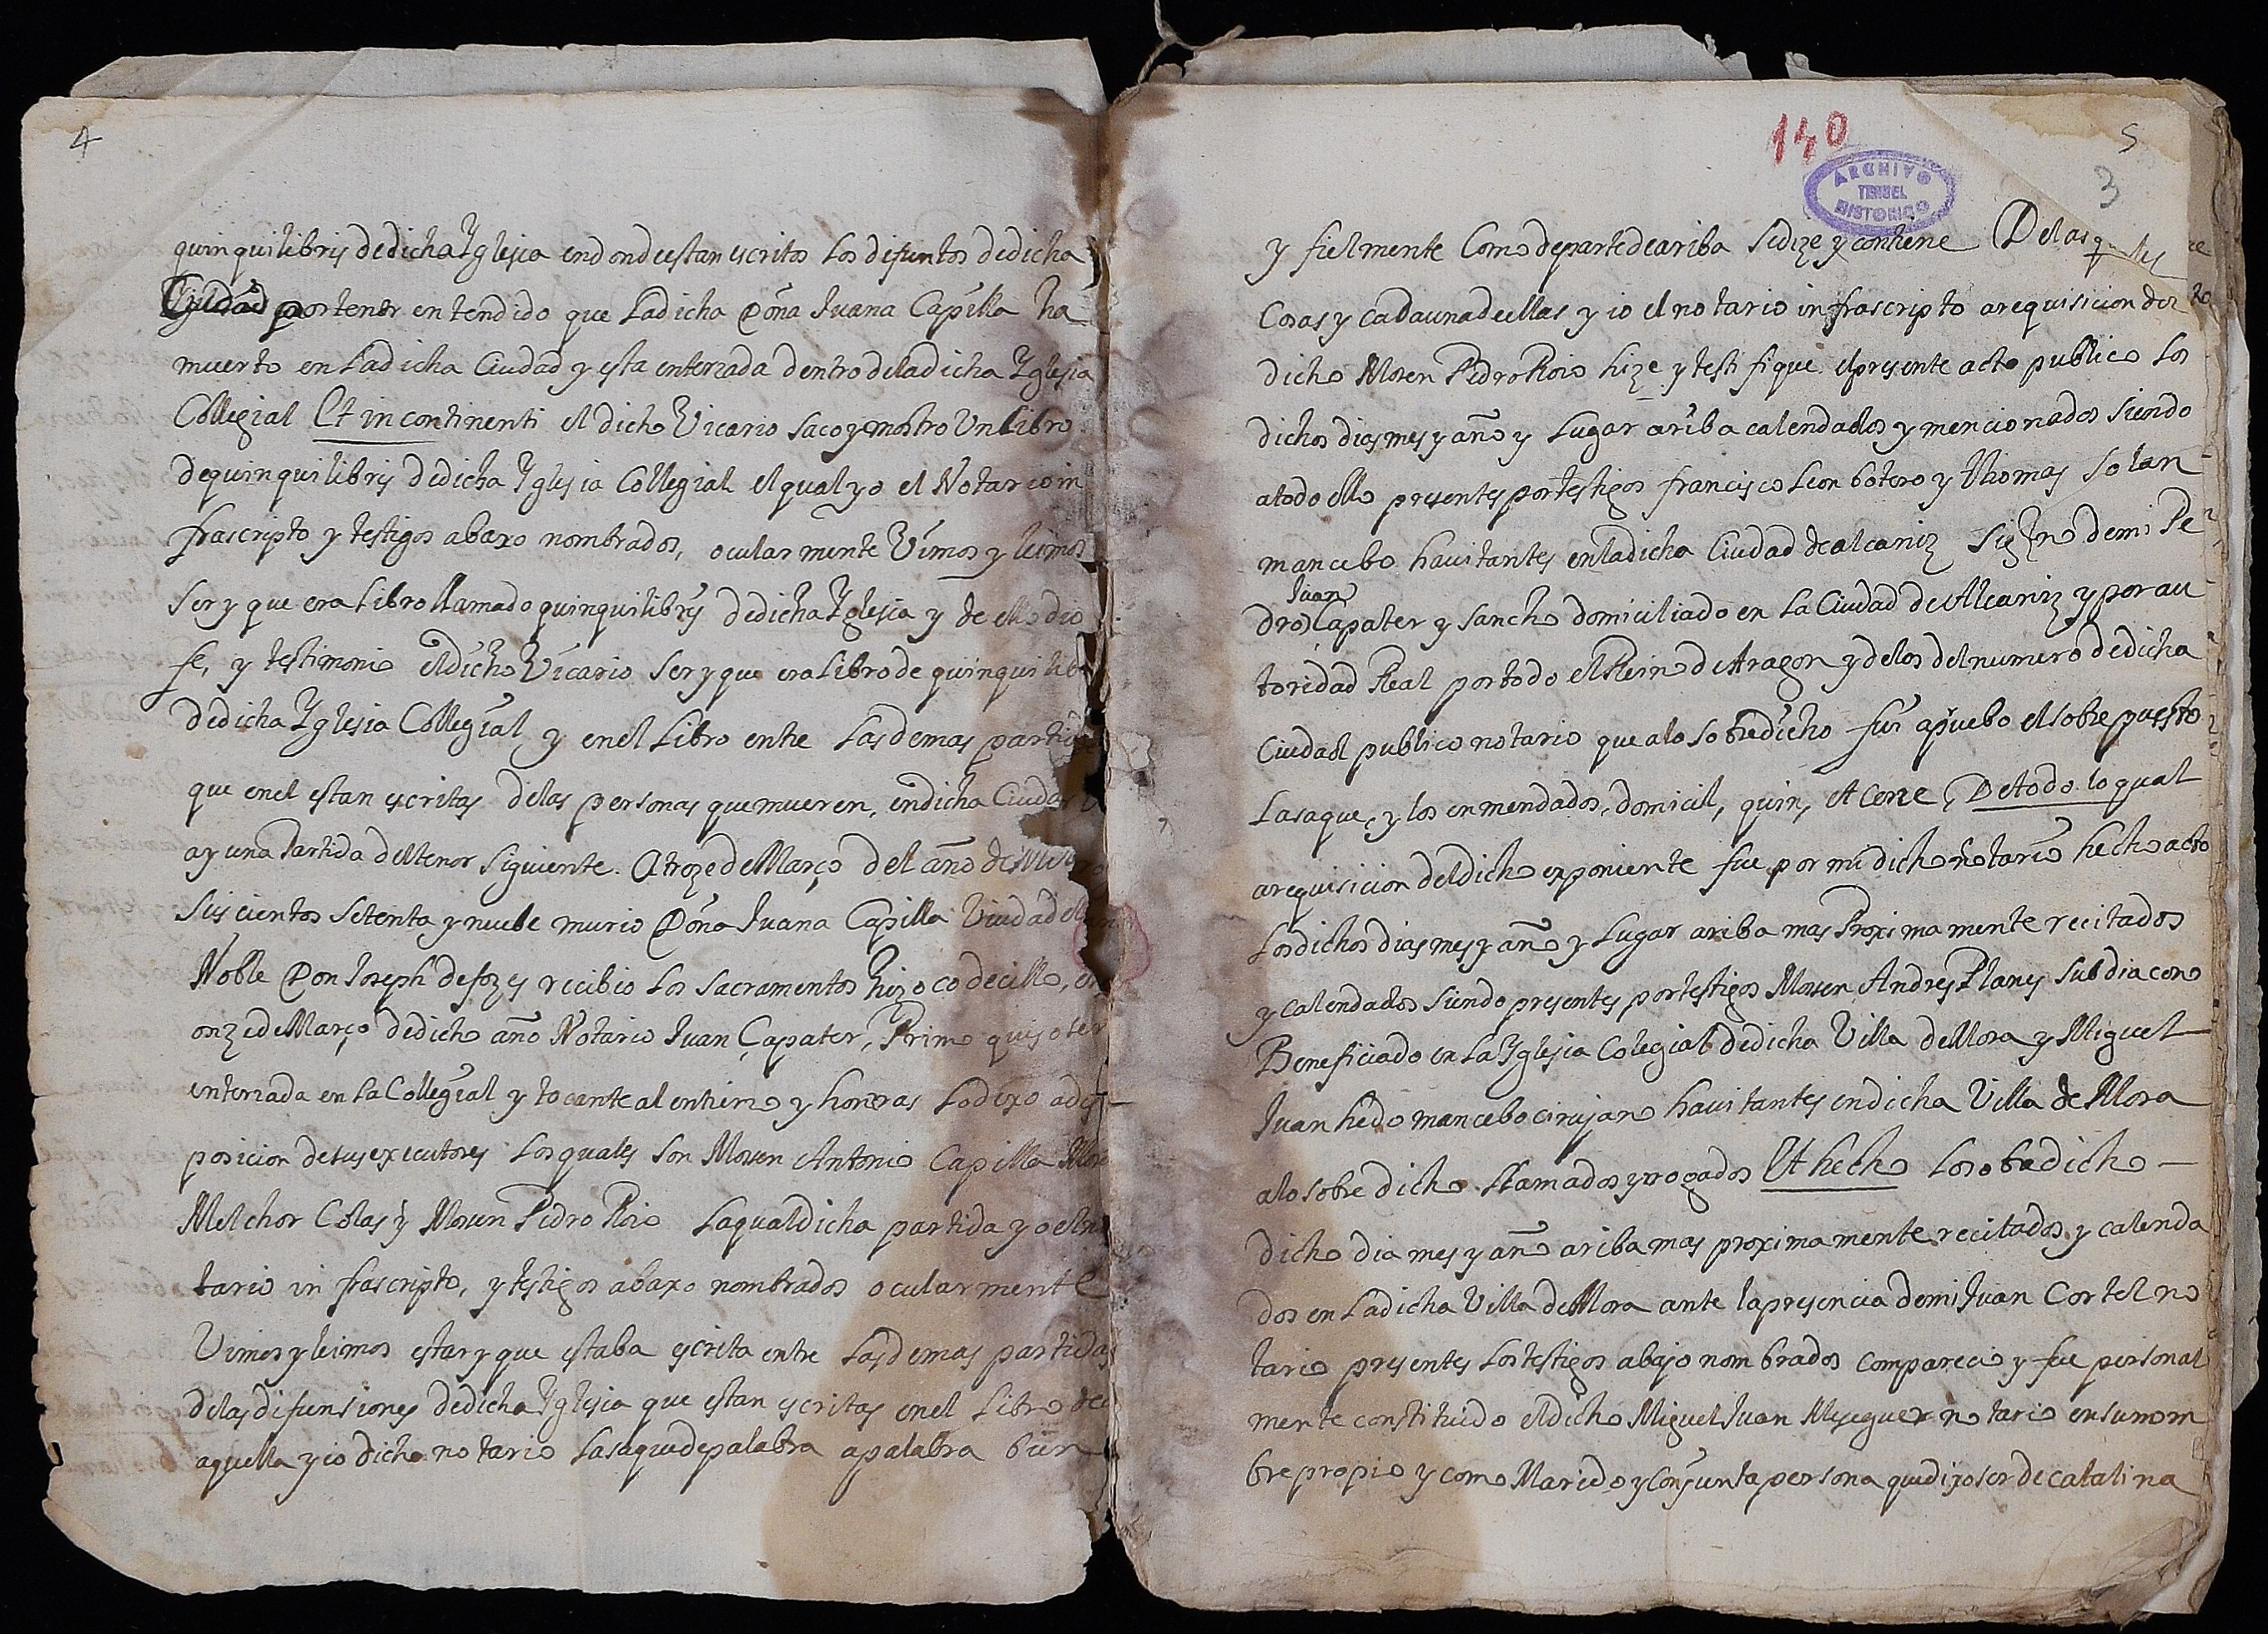 4
quinquilibris de dicha Yglesia en donde estan escritos los difuntos de dicha
Ciudad por tener entendido que la dicha Doña Juana Capilla ha
muerto en la dicha Ciudad y esta enterrada dentro de la dicha Yglesia
Collegial Et incontinenti el dicho Vicario saco y mostro Un libro
de quinquilibris de dicha Yglesia Collegial el qual yo el Notario in
frascripto y testigos abaxo nombrados, ocularmente Vimos y leimos
ser y que era libro llamado quinquilibris de dicha Yglesia y de ello dio
fe, y testimonio el dicho Vicario ser y que era libro de quinquilib
de dicha Yglesia Collegial y en el Libro entre las demas parti
que en el estan escritas de las personas que mueren, en dicha Ciudad
ay una Partida del tenor siguiente. A troze de Março del año de Mil
seiscientos setenta y nuebe murio Doña Juana Capilla Viuda del
Noble Don Joseph de foz y recibio los sacramentos hizo codecillo, en
onze de Março de dicho año Notario Juan Çapater, Primo quiso ser
enterrada en la Collegial y tocante al entierro y honrras lo dexo a dis
posicion de sus executores los quales son Mosen Antonio Capilla Mose
Melchor Colas y Mosen Pedro Roio la qual dicha partida yo el no
tario infrascripto, y testigos abaxo nombrados ocularmente
Vimos y leimos estar y que estaba escrita entre las demas partidas
de las difunsiones de dicha Yglesia que estan escritas en el Libro de
aquella y io dicho notario la saque de palabra a palabra bien
140
5
3
ARCHIVO
TERUEL
HISTORICO
y fielmente Como de parte de ariba se dize y contiene De las quales
Cosas y cada una de ellas y io el notario infrascripto a requisicion del
dicho Mosen Pedro Roio hize y testifique el presente acto publico los
dichos dias mes y año y lugar ariba calendados y mencionados siendo
a todo ello presentes por testigos francisco Leon botero y Thomas Solan
mancebo hauitantes en la dicha Ciudad de alcaniz Sig no de mi Pe
Juan
dro Çapater y Sancho domiciliado en la Ciudad de Alcaniz y por au
toridad Real por todo el Reino de Aragon y de los del numero de dicha
Ciudad publico notario que a lo sobredicho fui apruebo el sobrepuesto
la saque, y los enmendados, domicil, quin, et cerre, De todo lo qual
a requisicion del dicho exponiente fue por mi dicho notario hecho acto
Los dichos dias mes y año y lugar ariba mas Proximamente recitados
y calendados siendo presentes por testigos Mosen Andres Planes subdiacono
Beneficiado en la Yglesia Colegial de dicha Villa de Mora y Miguel
Juan hedo mancebo cirujano hauitantes en dicha Villa de Mora
a lo sobre dicho llamados y rogados Et hecho lo sobredicho
dicho dia mes y año ariba mas proximamente recitados y calenda
dos en la dicha Villa de Mora ante la presencia de mi Juan Cortel no
tario presentes los testigos abajo nombrados comparecio y fue personal
mente constituido el dicho Miguel Juan Meseguer notario en su nom
bre propio y como Marido y Conjunta persona que dixo ser de catalina